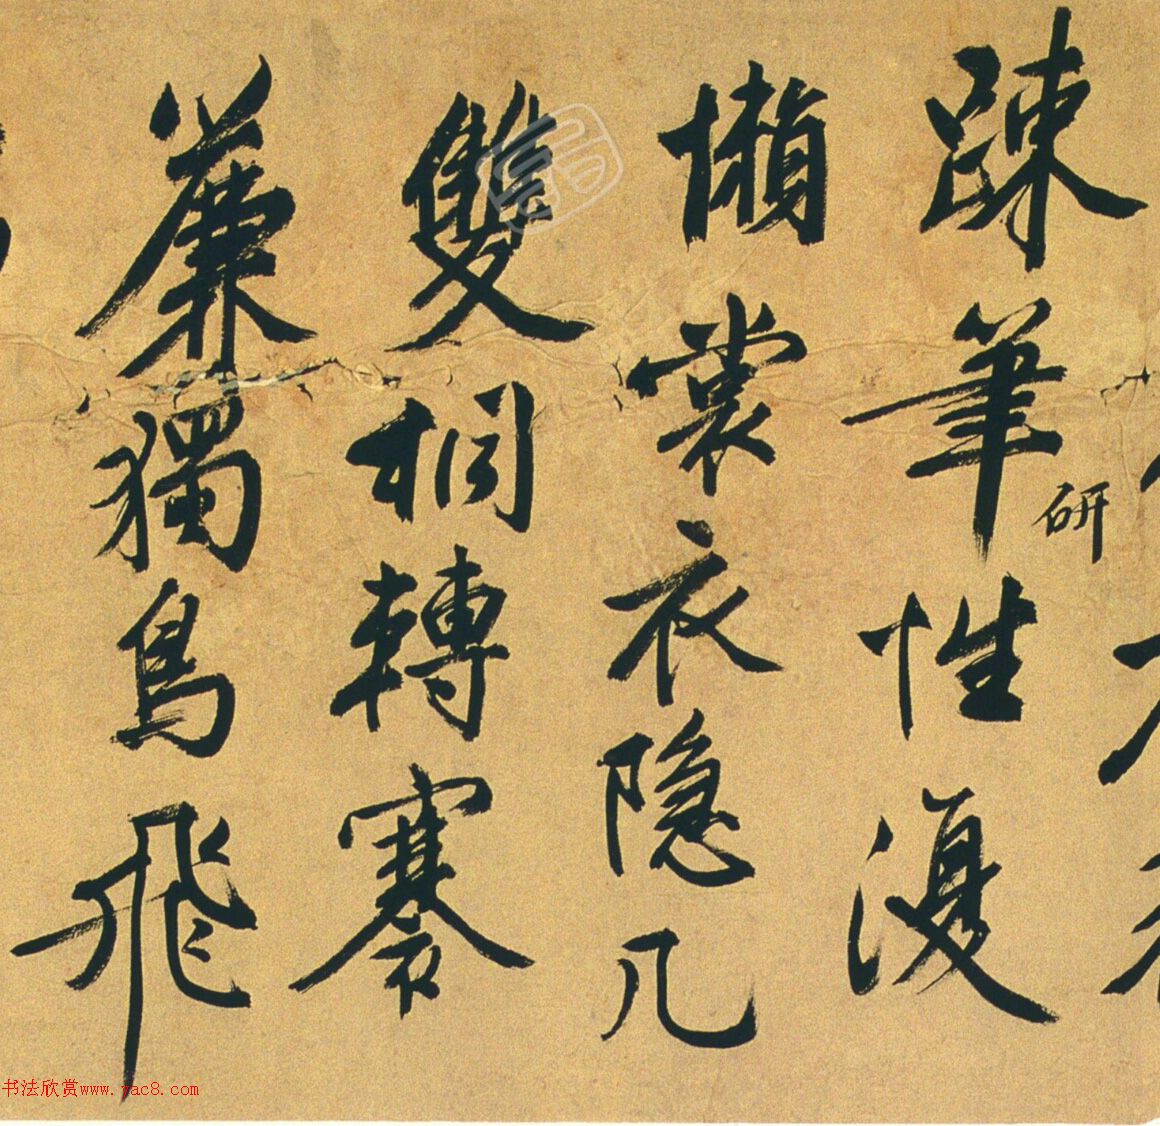 疎筆性復
研
懶裳衣隐几
雙桐轉褰
簾獨鳥飛
书法欣赏www.yac8.com